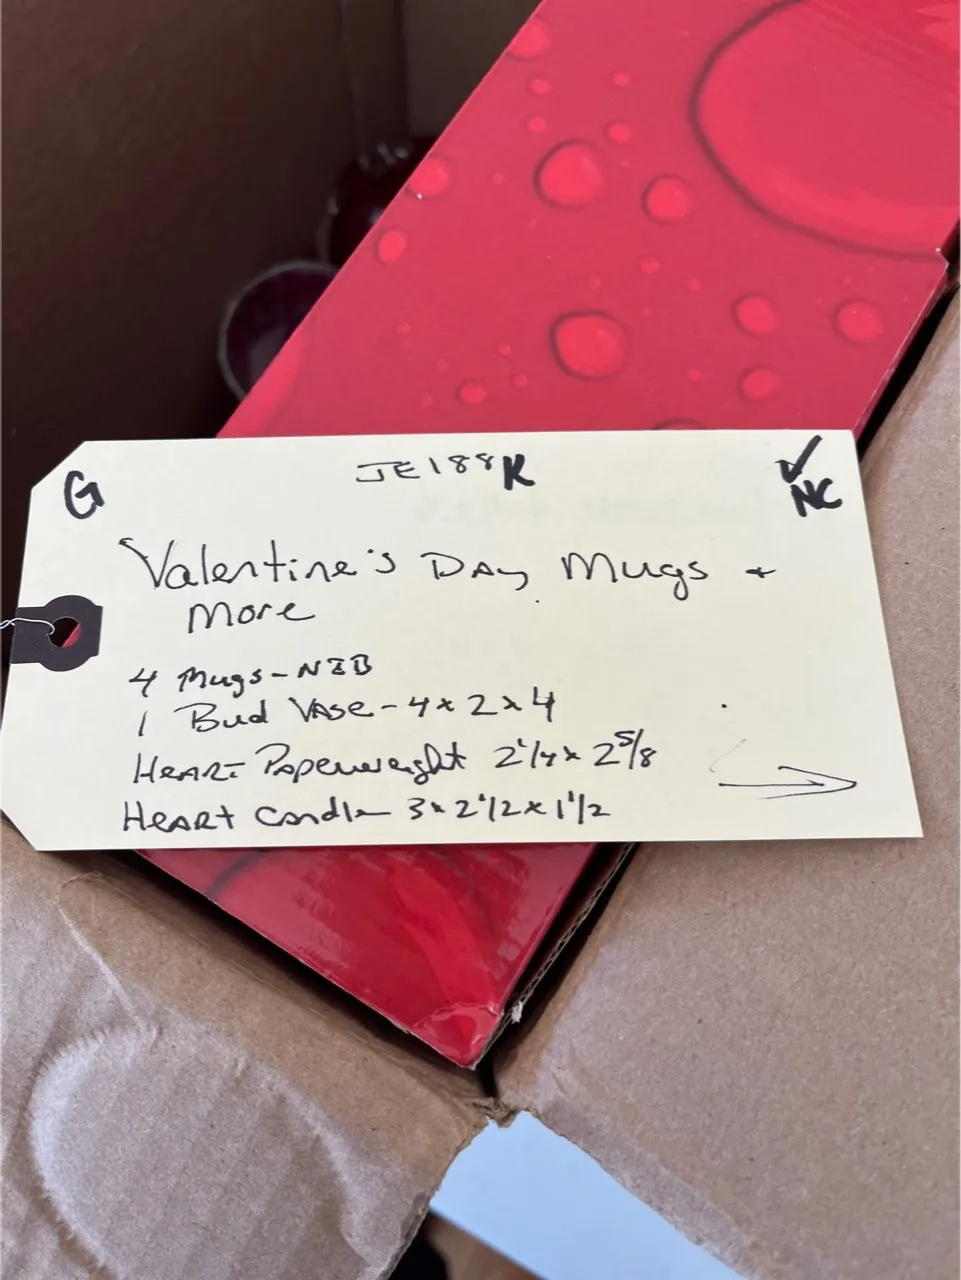 G JE188K ✓
NC
Valentine's Day Mugs +
More
4 Mugs - NIB
1 Bud Vase - 4 x 2 x 4
Heart Paperweight 2 1/4 x 2 5/8
Heart Candle 3 x 2 1/2 x 1 1/2